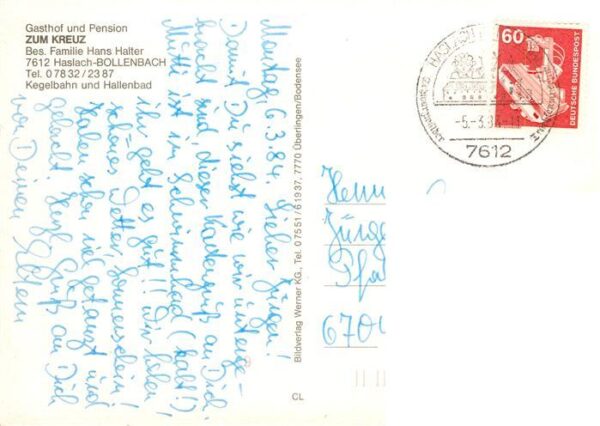 Gasthof und Pension
ZUM KREUZ
Bes. Familie Hans Halter
7612 Haslach-BOLLENBACH
Tel. 0 78 32 / 23 87
Kegelbahn und Hallenbad
Montag, 6.3.84. Lieber Jürgen!
Damit Du siehst wie wir unterge-
bracht sind, dieser Kartengruß an Dich.
Mutti ist im Schwimmbad (kalt!)
ihr geht es gut!! Wir haben
schönes Wetter, Sonnenschein!
Haben schon viel getanzt und
gelacht. Herzl. Gruß an Dich
von Deinen Eltern
Bildverlag Werner KG., Tel. 0 75 51 / 6 19 37, 7770 Überlingen/Bodensee
CL
60
DEUTSCHE BUNDESPOST
HASLACH
-5.-3.84-11
7612
Herrn
Jürge
Pfa
670